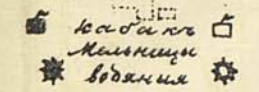 кабакъ
Мельницы
водяныя